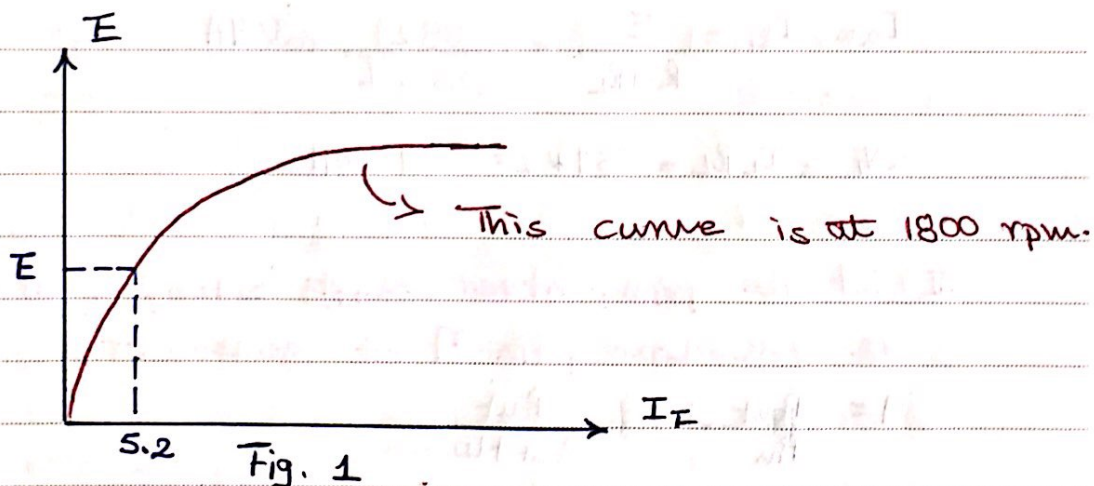 E
This curve is at 1800 rpm.
E
I_F
5.2
Fig. 1